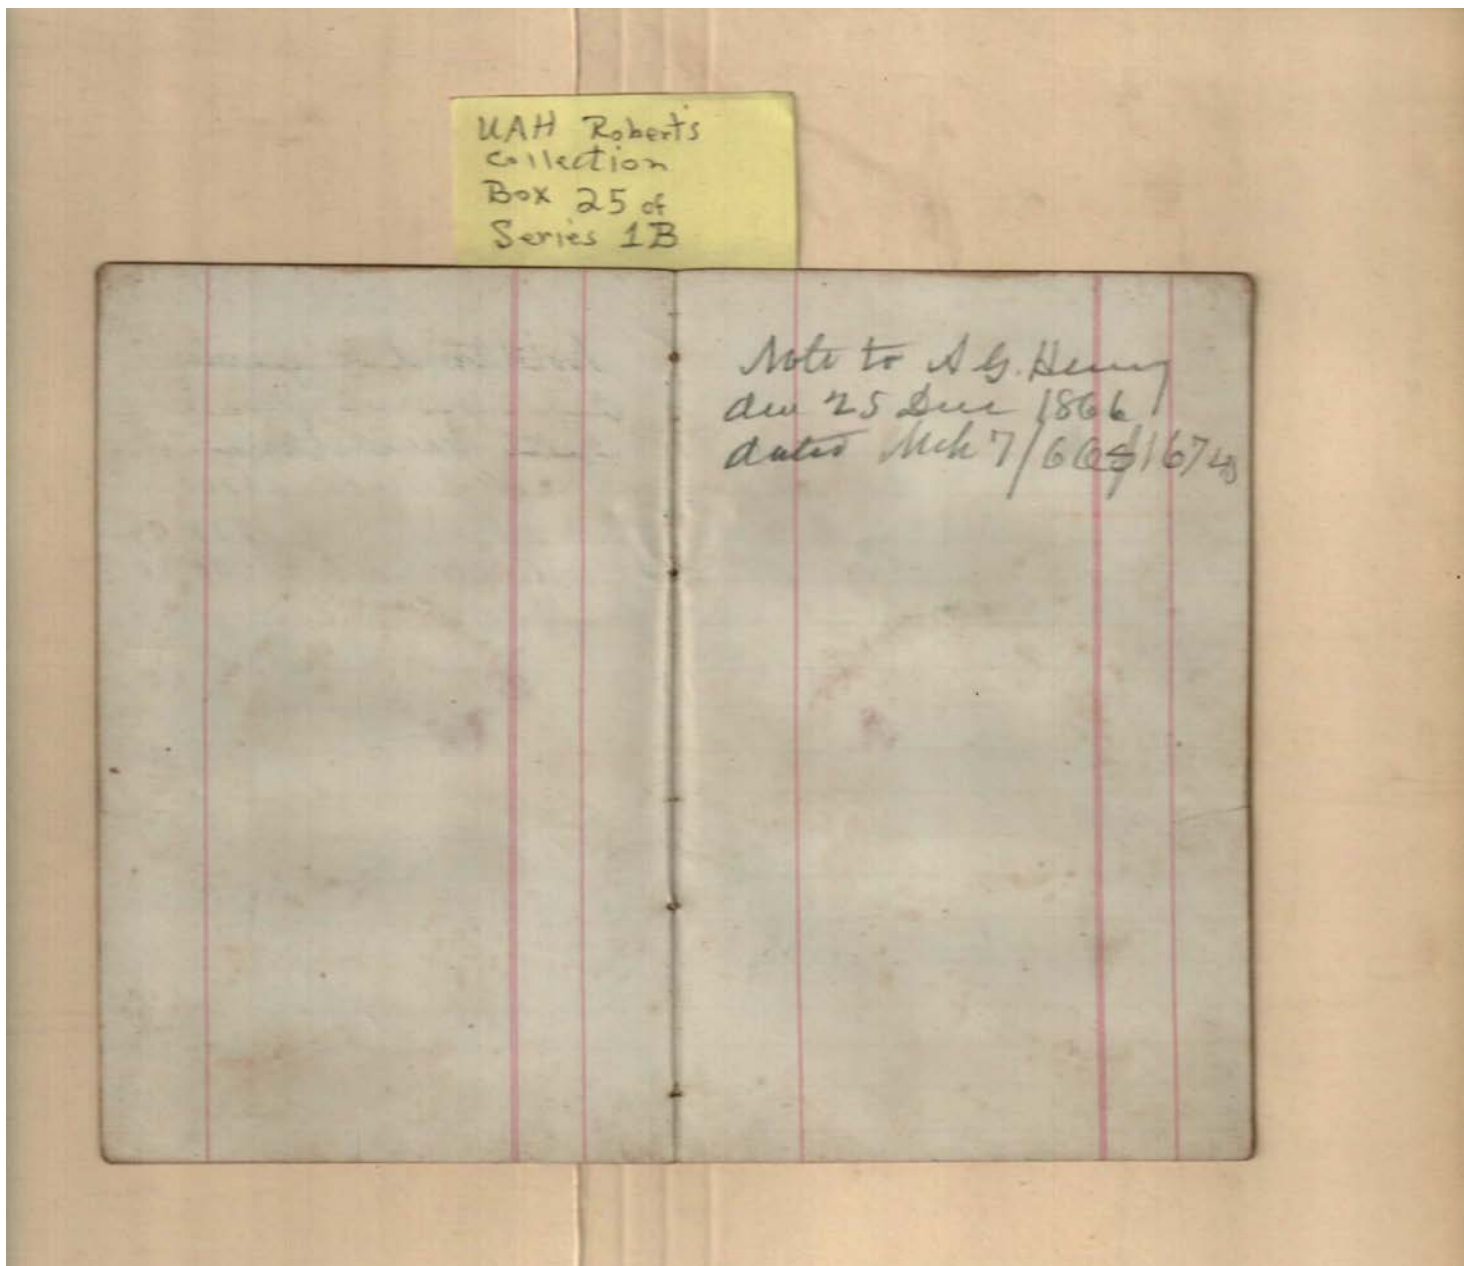 UAH Roberts
Collection
Box 25 of
Series 1B
Note to A G. Henry
due 25 Dec 1866
dated Mch 7/66 $1674